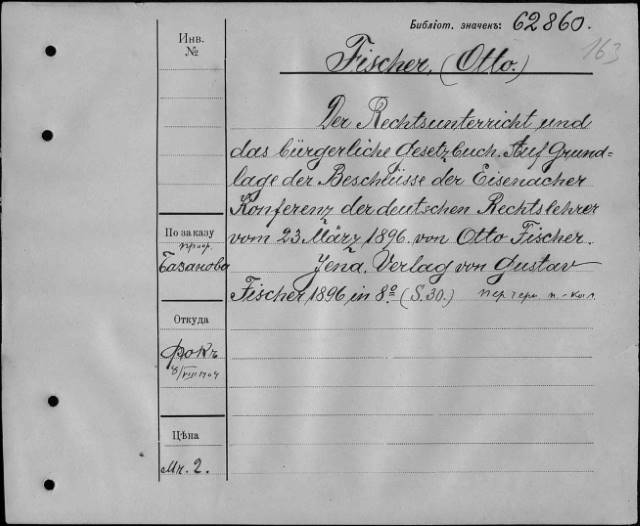 Библіот. значенъ: 62860.
163
Инв.
№
Fischer, (Otto.)
Der Rechtsunterricht und
das bürgerliche Gesetzbuch. Auf Grund=
lage der Beschlüsse der Eisenacher
Konferenz der deutschen Rechtslehrer
vom 23 März 1896. von Otto Fischer.
Jena, Verlag von Gustav
Fischer 1896 in 8º (S. 30.)
По заказу
проф.
Базанова
Откуда
Фокъ
8/VIII 1904
Цѣна
Мк. 2.